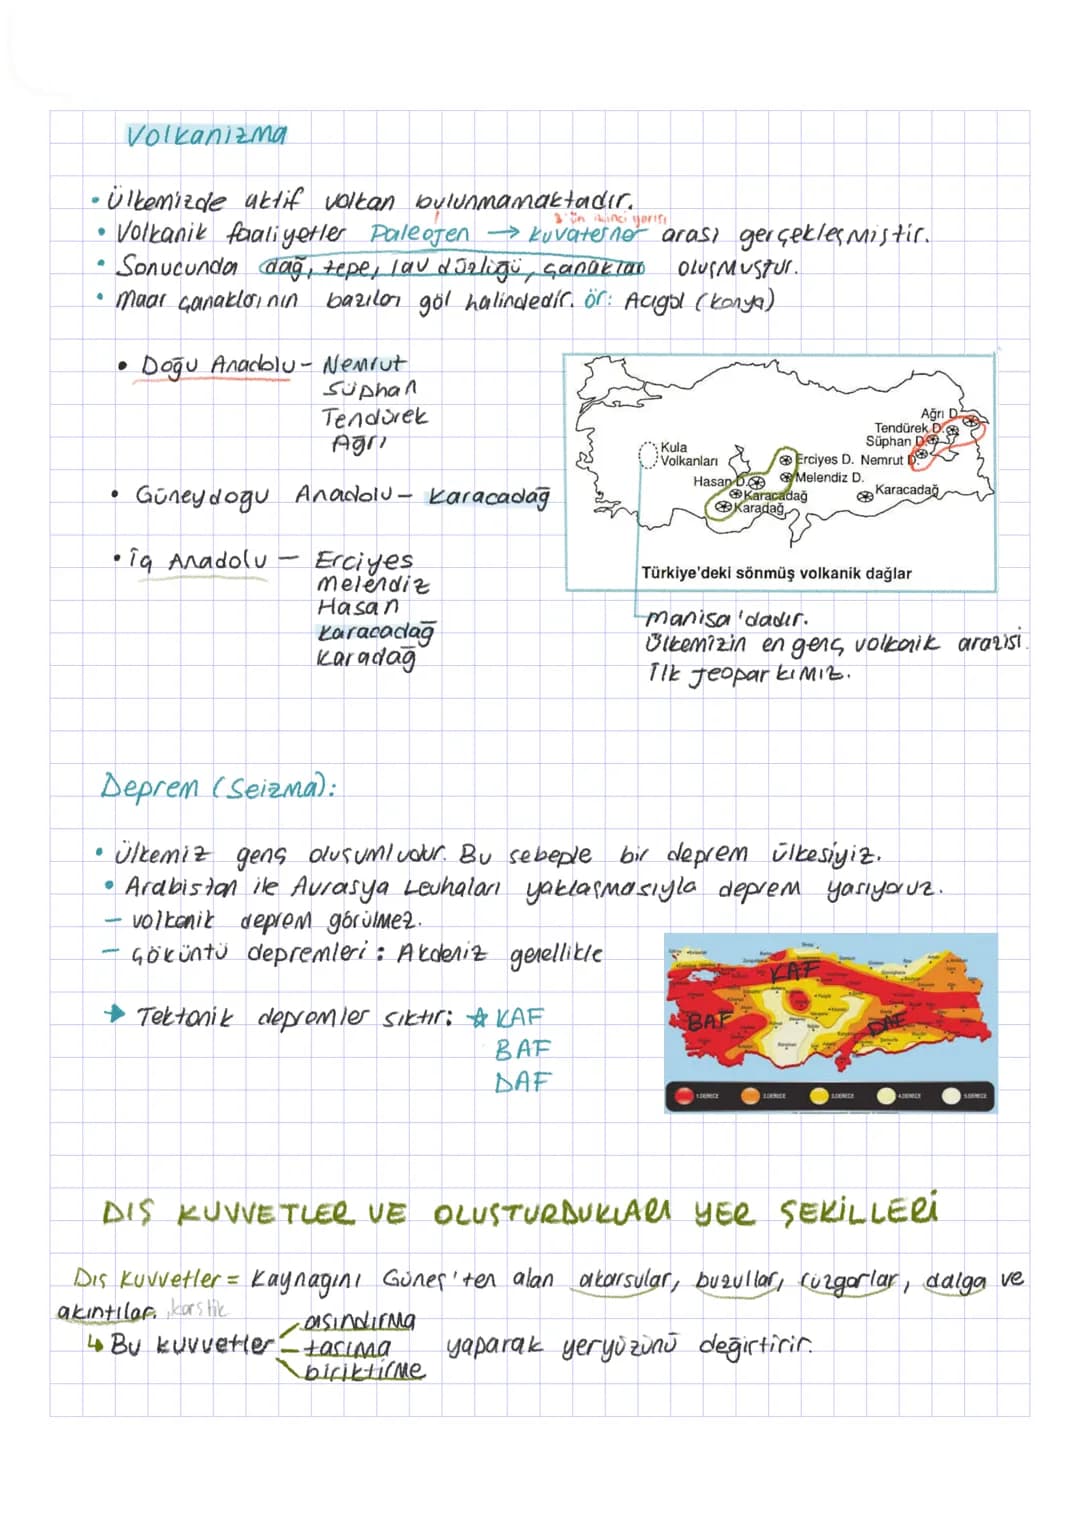 Volkanizma
• Ülkemizde aktif volkan bulunmamaktadır.
3'ün ikinci yarısı
• Volkanik faaliyetler Paleojen → Kuvaterner arası gerçekleşmiştir.
• Sonucunda dağ, tepe, lav düzlüğü, çanaklar oluşmuştur.
• Maar çanaklarının bazıları göl halindedir. ör: Acıgöl (Konya)
• Doğu Anadolu - Nemrut
Süphan
Tendürek
Ağrı
• Güneydogu Anadolu - Karacadağ
• İç Anadolu - Erciyes
Melendiz
Hasan
Karacadağ
Karadağ
Ağrı D.
Tendürek D.
Süphan D.
Kula
Volkanları
Erciyes D. Nemrut D.
Hasan D.
Melendiz D.
Karacadağ
Karacadağ
Karadağ
Türkiye'deki sönmüş volkanik dağlar
Manisa'dadır.
Ülkemizin en genç volkanik arazisi.
İlk jeoparkımız.
Deprem (Seizma):
• Ülkemiz genç oluşumludur. Bu sebeple bir deprem ülkesiyiz.
• Arabistan ile Avrasya Levhaları yaklaşmasıyla deprem yaşıyoruz.
- volkanik deprem görülmez.
- çöküntü depremleri: Akdeniz genellikle
→ Tektonik depremler sıktır: ☆ KAF
BAF
DAF
KAF
BAF
DAF
1.DERECE 2.DERECE 3.DERECE 4.DERECE 5.DERECE
DIŞ KUVVETLER VE OLUŞTURDUKLARI YER ŞEKİLLERİ
Dış Kuvvetler = Kaynagını Güneş'ten alan akarsular, buzullar, rüzgarlar, dalga ve
akıntılar. karstik
↳ Bu kuvvetler aşındırma
taşıma yaparak yeryüzünü değiştirir.
biriktirme